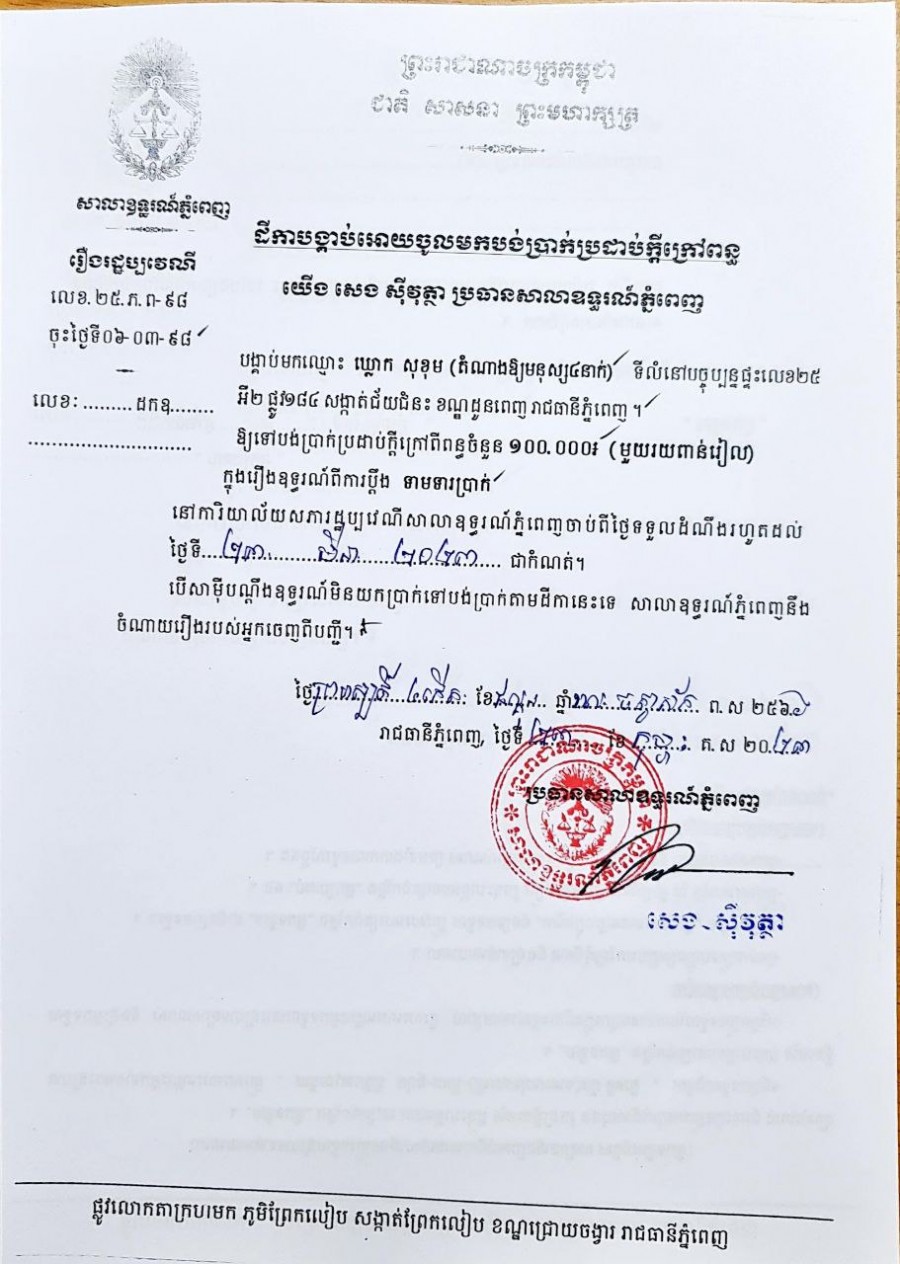 ព្រះរាជាណាចក្រកម្ពុជា
ជាតិ សាសនា ព្រះមហាក្សត្រ
សាលាឧទ្ធរណ៍ភ្នំពេញ
រឿងរដ្ឋប្បវេណី
លេខ.២៥.ភ.ព-៩៨
ចុះថ្ងៃទី០៦-០៣-៩៨
លេខ: ......... ដកឧ........
ដីកាបង្គាប់អោយចូលមកបង់ប្រាក់ប្រដាប់ក្តីក្រៅពន្ធ
យើង សេង ស៊ីវុត្ថា ប្រធានសាលាឧទ្ធរណ៍ភ្នំពេញ
បង្គាប់មកឈ្មោះ ឃ្លោក សុខុម (តំណាងឱ្យមនុស្ស៤នាក់) ទីលំនៅបច្ចុប្បន្នផ្ទះលេខ២៥
អឺ២ ផ្លូវ១៨៤ សង្កាត់ជ័យជំនះ ខណ្ឌដូនពេញ រាជធានីភ្នំពេញ ។
ឱ្យទៅបង់ប្រាក់ប្រដាប់ក្តីក្រៅពីពន្ធចំនួន ១០០.០០០៛ (មួយរយពាន់រៀល)
ក្នុងរឿងឧទ្ធរណ៍ពីការប្តឹង ទាមទារប្រាក់
នៅការិយាល័យសភារដ្ឋប្បវេណីសាលាឧទ្ធរណ៍ភ្នំពេញចាប់ពីថ្ងៃទទួលដំណឹងរហូតដល់
ថ្ងៃទី....២៣.........មីនា.......២០២៣.... ជាកំណត់។
បើសាម៉ីបណ្តឹងឧទ្ធរណ៍មិនយកប្រាក់ទៅបង់ប្រាក់តាមដីកានេះទេ សាលាឧទ្ធរណ៍ភ្នំពេញនឹង
ចំណាយរឿងរបស់អ្នកចេញពីបញ្ជី។
ថ្ងៃព្រហស្បតិ៍....៤កើត. ខែផល្គុន.. ឆ្នាំខាល..ចត្វាស័ក. ព.ស ២៥៦៦
រាជធានីភ្នំពេញ, ថ្ងៃទី ២៣ ខែ កុម្ភៈ គ.ស ២០.២៣
ប្រធានសាលាឧទ្ធរណ៍ភ្នំពេញ
ព្រះរាជាណាចក្រកម្ពុជា
សាលាឧទ្ធរណ៍ភ្នំពេញ
សេង ស៊ីវុត្ថា
ផ្លូវលោកតាក្រហមក ភូមិព្រែកលៀប សង្កាត់ព្រែកលៀប ខណ្ឌជ្រោយចង្វារ រាជធានីភ្នំពេញ